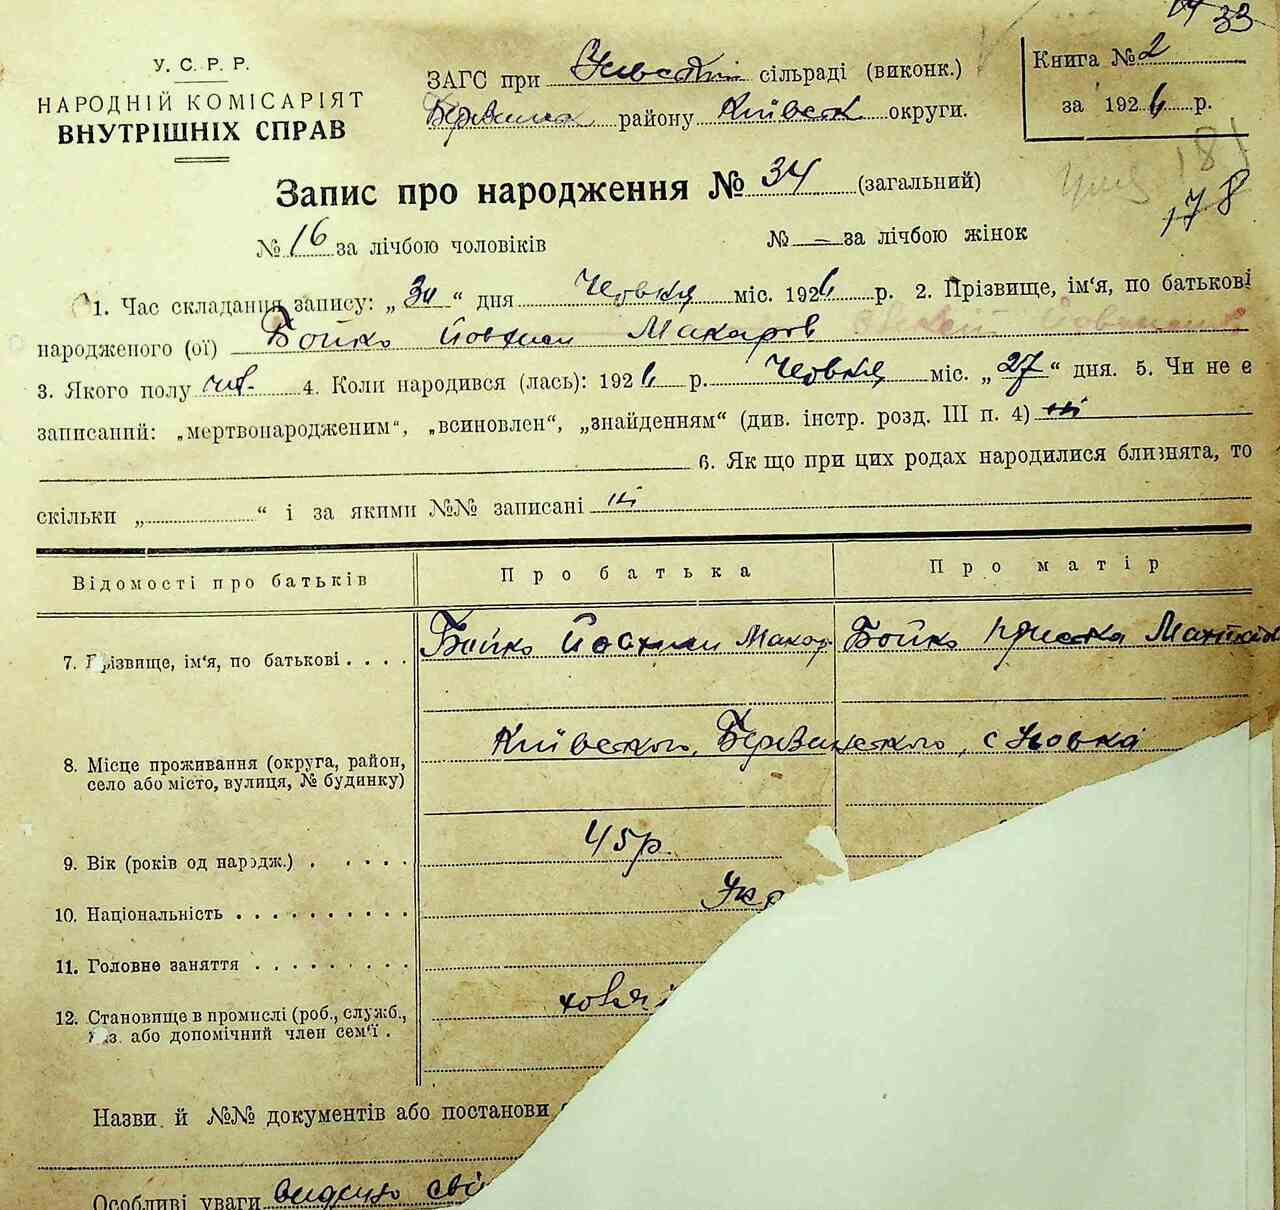 У. С. Р. Р.
НАРОДНІЙ КОМІСАРІЯТ
ВНУТРІШНІХ СПРАВ
ЗАГС при сільраді (виконк.)
району Київськ округи.
Книга № 2
за 1926 р.
33
Запис про народження № 34 (загальний)
181
178
№ 16 за лічбою чоловіків № — за лічбою жінок
1. Час складання запису: „30“ дня Червня міс. 1926 р. 2. Прізвище, ім'я, по батькові
народженого (ої) Бойко Йовхим Макаров
3. Якого полу чол. 4. Коли народився (лась): 1926 р. Червня міс. „27“ дня. 5. Чи не є
записаний: „мертвонародженим“, „всиновлен“, „знайденням“ (див. інстр. розд. III п. 4) ні
6. Як що при цих родах народилися близнята, то
скільки „ “ і за якими №№ записані ні
Відомості про батьків Про батька Про матір
7. Прізвище, ім'я, по батькові . . . . Бойко Йовхим Макар Бойко Пріська
8. Місце проживання (округа, район,
село або місто, вулиця, № будинку)
Київського, с
9. Вік (років од народж.) . . . . . 45 р.
10. Національність . . . . . . . . . . Укр
11. Головне заняття . . . . . . . . .
12. Становище в промислі (роб., служб.,
газ. або допомічний член сем'ї .
Назви й №№ документів або постанови
Особливі уваги видано сві